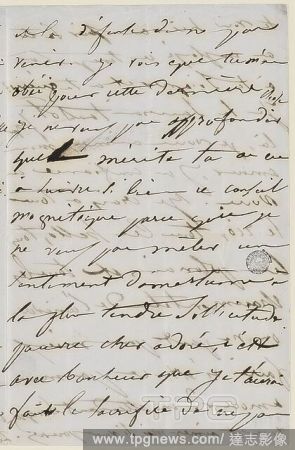 et la défense de ne pas
venir. je vois que tu m'as
obéi pour cette dernière
je ne veux pas approfondir
quel mérite tu as eu
à suivre si bien ce conseil
magnétique parce que je
ne veux pas mêler un
sentiment d'amertume à
la plus tendre sollicitude
pauvre cher adoré c'est
avec bonheur que je t'aurai
fait le sacrifice de ne pas
TPG
www.tpgnews.com | 達志影像